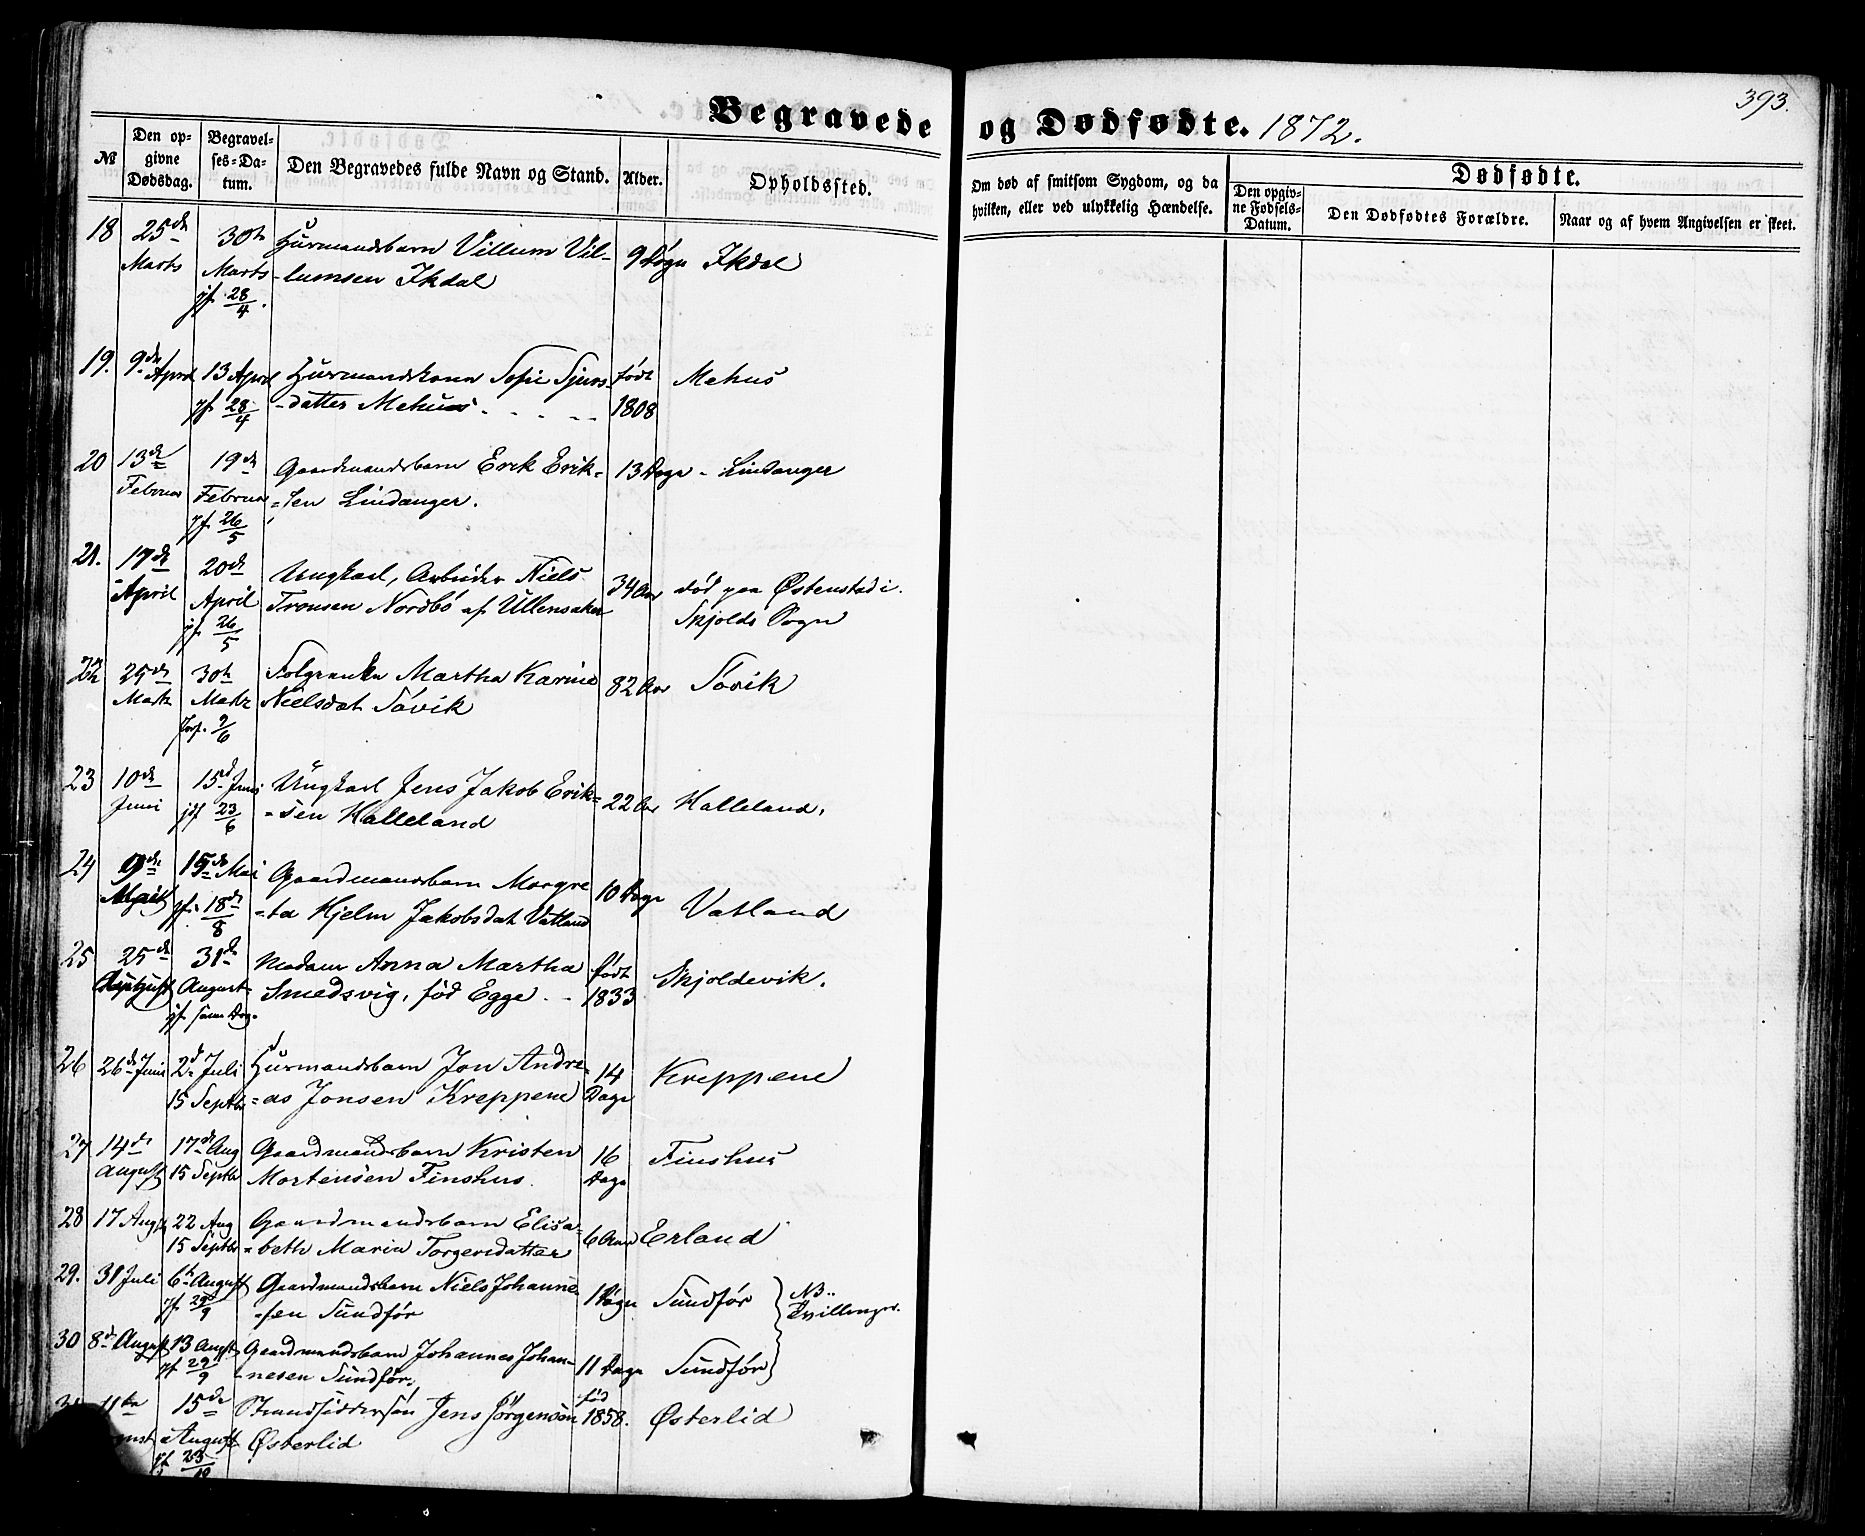 393.
Begravede og Dødfødte. 1872.
№
Den op-
givne
Dødsdag.
Begravel-
ses-Da-
tum.
Den Begravedes fulde Navn og Stand.
Alder.
Opholdssted.
Om død af smitsom Sygdom, og da
hvilken, eller ved ulykkelig Hændelse.
Dødfødte.
Den opgiv-
ne Fødsels-
Datum.
Den Dødfødtes Forældre.
Naar og af hvem Angivelsen er skeet.
18 25de 30te Husmandsbarn Villum Vil- 9 Døgn Ikdal
Marts Marts -lumsen Ikdal
jf. 28/4.
19. 9de April 13 April Husmandskona Sofie Sjurs født Mehus
jf 28/4 -datter Mehus. 1808
20 13de 19de Gaardmandsbarn Erik Erik= 13 Dage - Lindanger
Februar Februar =sen Lindanger.
jf. 26/5
21. 17de 20de Ungkarl, Arbeider Niels 34 Aar død paa Østenstad i
April April Tronsen Nordbö af Ullensaker Skjolds Sogn
jf. 26/5
22 25de 30te Folgeenke Martha Karine 82 Aar Tovik
Marts Nielsdat Tövik
Forf. 9/6
23 10de 15d Juni Ungkarl Jens Jakob Erik= 22 Aar Halleland.
Juni jf 23/6 =sen Halleland
24 9de 15de Mai Gaardmandsbarn Margre 10 Dage Vatland
jf. 18de/8 =ta Hjelm Jakobsdat Vatland
25 25de 31de Madam Anna Martha født Skjoldevik.
August August Smedsvig, fød Egge. 1833
jf. samme Dag.
26 26de Juni 2d Juli Husmandsbarn Jon Andre= 14 Kreppene
15 Septbr =as Jonsen Kreppene Dage
27 14de 17de Aug Gaardmandsbarn Kristen 16 Finshus
August 15 Septbr Mortensen Finshus. Dage
28 17 Aug 22 Aug Gaardmandsbarn Elisa= 6 Aar Erland
15 Septbr =beth Maria Torgersdatter
29. 31 Juli 6te August Gaardmandsbarn Niels Johanne 1 Døgn Sundför NB..
jf. 29/9 =sen Sundför Tvillinger.
30 8de August 13 August Gaardmandsbarn Johannes Johan= 11 Dage Sundför
jf 29/9 =nesen Sundför.
11te 15de Strandsiddersön Jens Jörgensön fød 1858. Østerlid
August Østerlid
jf 23/10